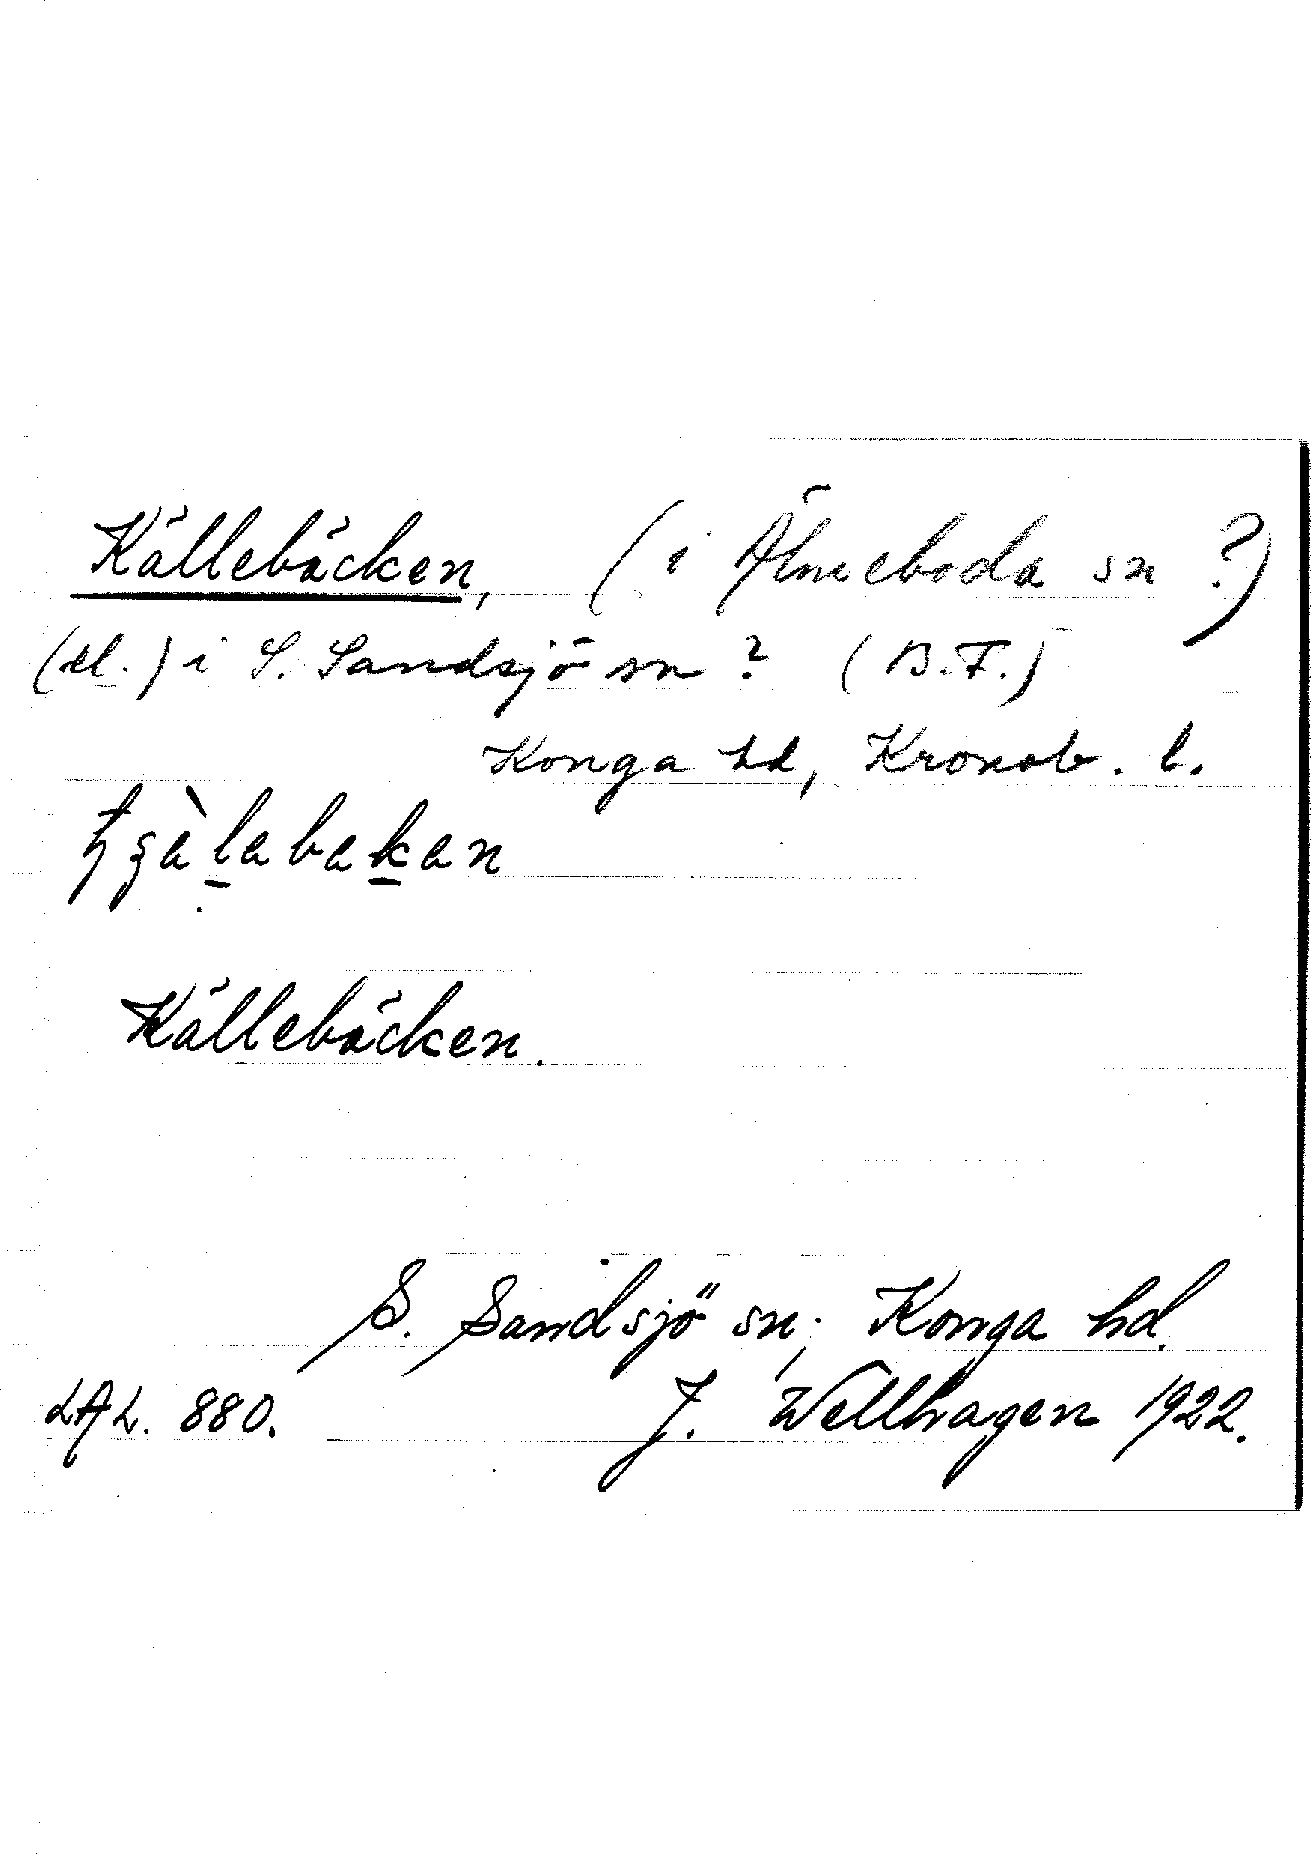 Källebäcken, (i Älmeboda sn ?)
(el.) i S. Sandsjö sn ? (B.F.)
Konga hd, Kronob. l.
Källebäcken.
S. Sandsjö sn; Konga hd.
LAL. 880. J. Wellhagen 1922.